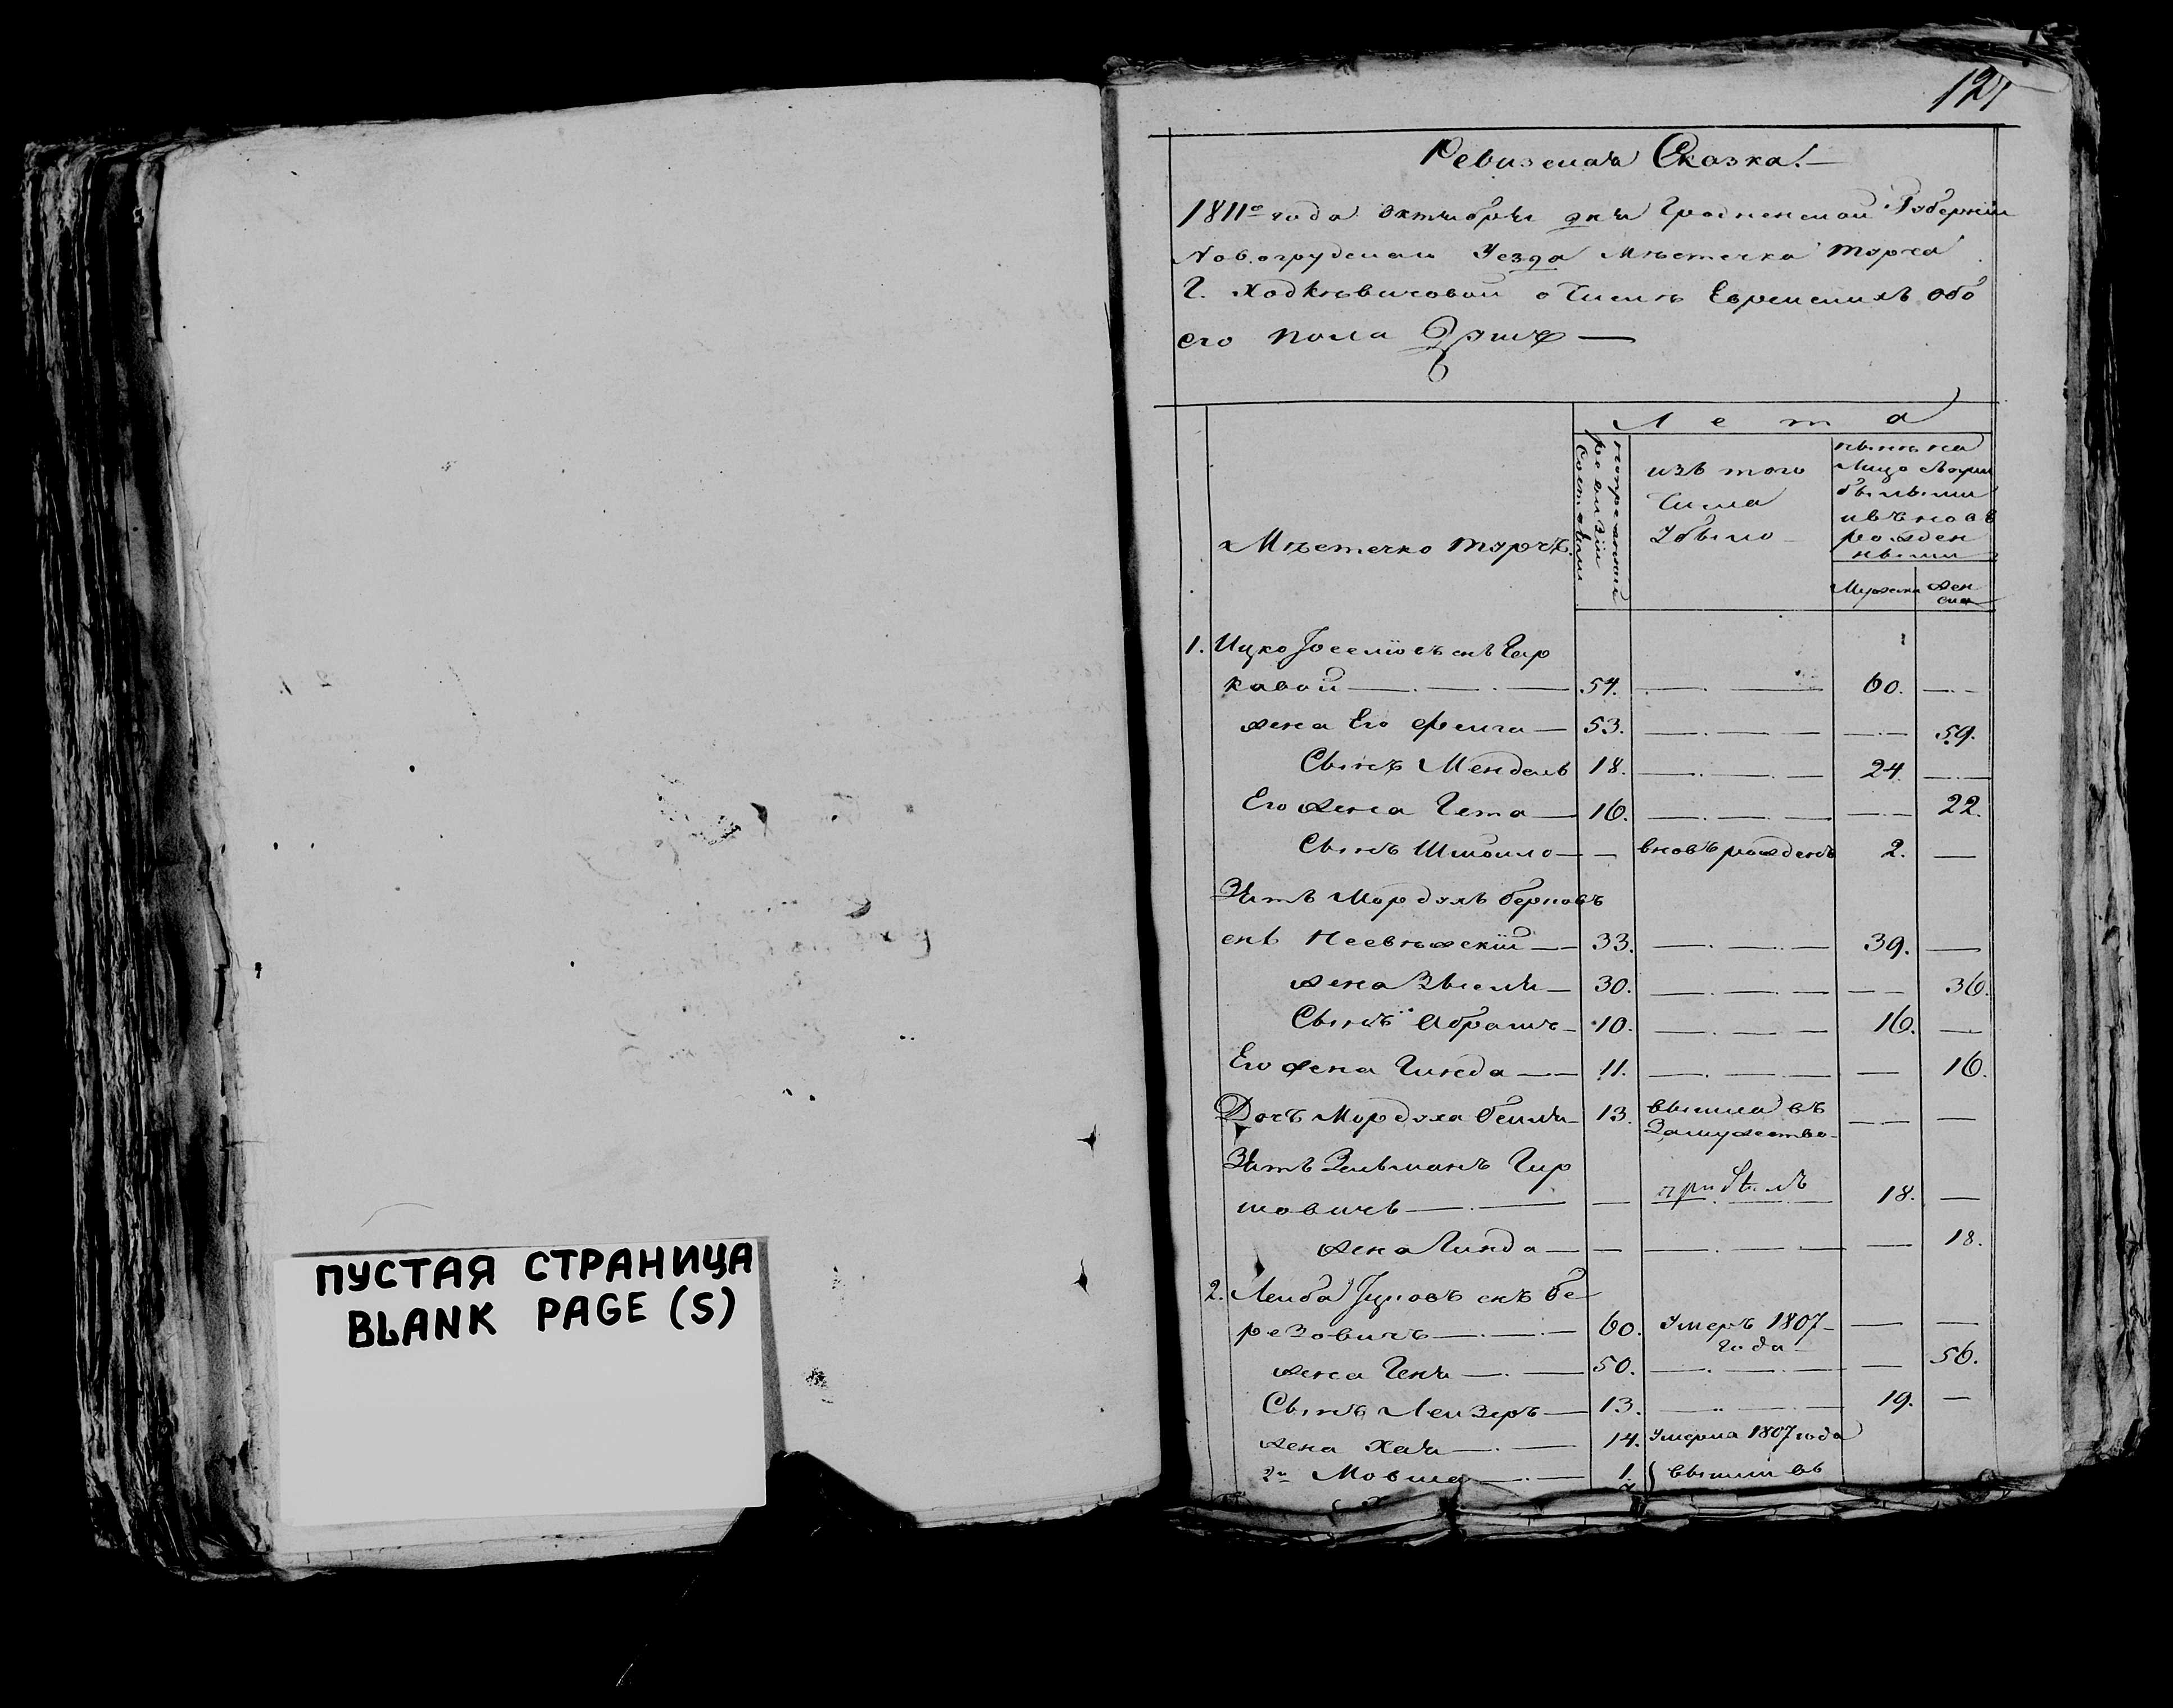 ПУСТАЯ СТРАНИЦА
BLANK PAGE (S)
Ревизская Сказка!
1811го года октября дня Гродненской Губернии
Новогрудскаго Уезда Мѣстечка Турца
Г. Ходкѣвичовой о Числѣ Еврейскихъ обо
его пола Душъ
Лета
Мѣстечко Турецъ
по ревизіи Состояли
изъ того
Числа
Убыло
нынѣ на
Лицо
рожден
ными
Мужеска Жен
ска
1. Ицко Іоселіовъ снъ
кавой 54. 60.
жена Его Фейга 53. 59.
Сынъ Мендель 18. 24
Его жена Гета 16. 22.
Сынъ Шмойло вновь рожденъ 2.
Зять Мордухъ Берковъ
снъ 33. 39.
жена Зысля 30. 36.
Сынъ Абрамъ 10. 16.
Его жена Гинда 11. 16.
Дочъ Мордуха Бейля 13. вышла въ
Замужество
Зять Зельманъ Гир
шовичъ прибылъ 18.
жена Гинда 18.
2. Лейба Іцковъ снъ Бе
резовичъ 60. Умеръ 1807
года
жена Геня 50. 56.
Сынъ Лейзеръ 13. 19.
жена Хая 14. Умерла 1807 года
2й Мовша 1. вышли въ